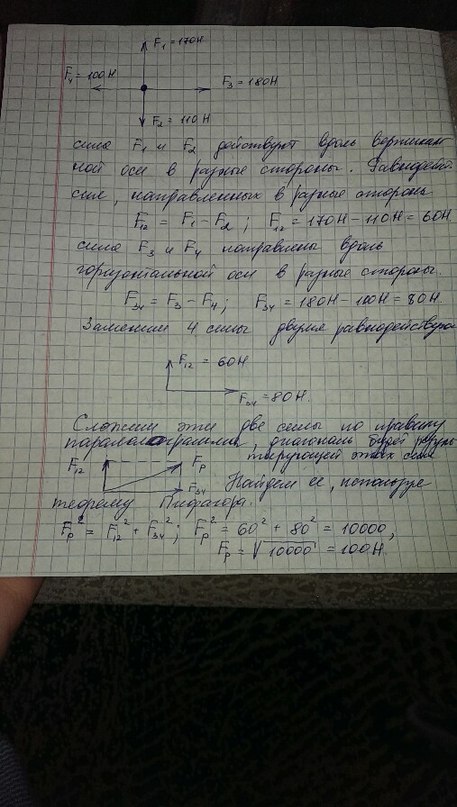 F₁ = 170H
F₄ = 100H
F₃ = 180H
F₂ = 110H
сила F₁ и F₂ действуют вдоль вертикаль
ной оси в разные стороны. Равнодей
сил, направленных в разные стороны
F₁₂ = F₁ - F₂ ; F₁₂ = 170H - 110H = 60H.
сила F₃ и F₄ направлены вдоль
горизонтальной оси в разные стороны.
F₃₄ = F₃ - F₄ ; F₃₄ = 180H - 100H = 80H.
Заменим 4 силы двумя равнодейству
F₁₂ = 60H
F₃₄ = 80H.
Сложим эти две силы по правилу
параллелограмма, диагональ будет резуль
тирующей этих сил
F₁₂ Fр
F₃₄
Найдем её, используе
теорему Пифагора.
Fр² = F₁₂² + F₃₄² ; Fр² = 60² + 80² = 10000,
Fр = √10000 = 100H.